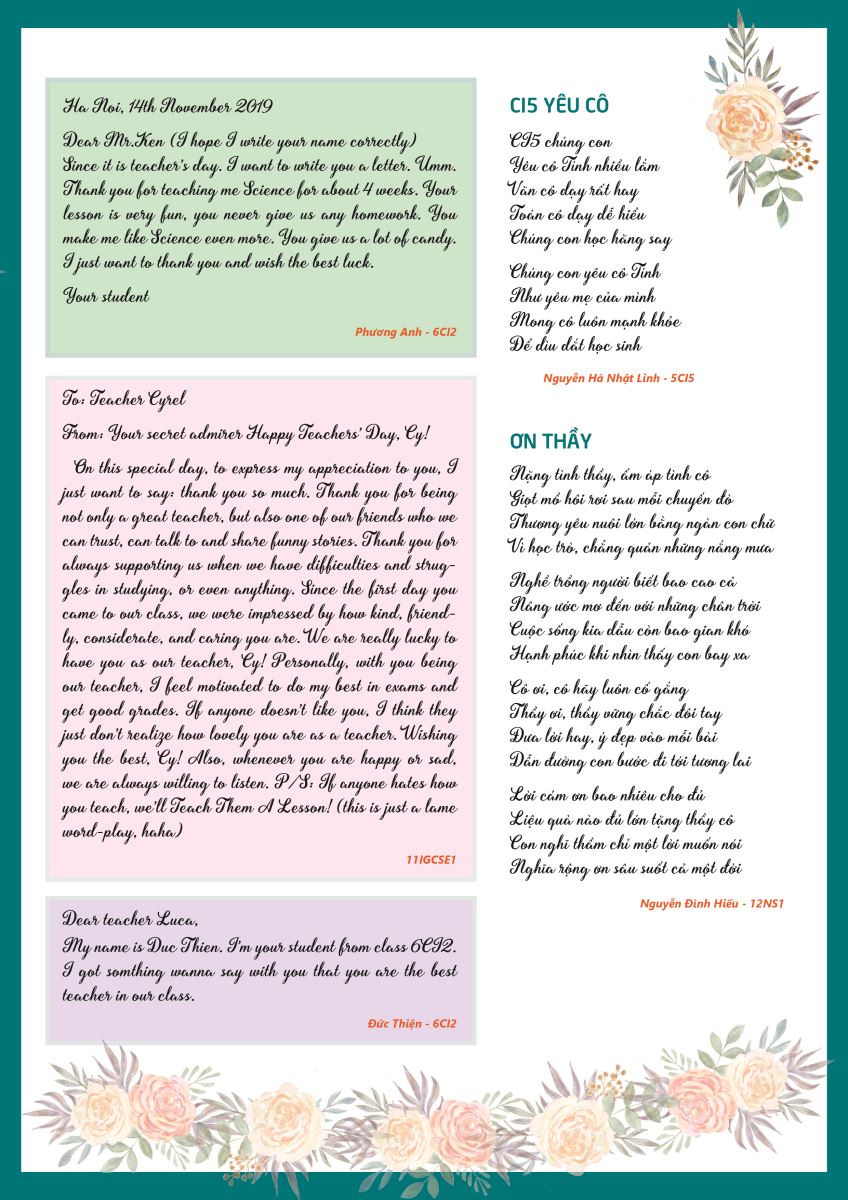 Ha Noi, 14th November 2019
Dear Mr.Ken (I hope I write your name correctly)
Since it is teacher's day. I want to write you a letter. Umm.
Thank you for teaching me Science for about 4 weeks. Your
lesson is very fun, you never give us any homework. You
make me like Science even more. You give us a lot of candy.
I just want to thank you and wish the best luck.
Your student
Phương Anh - 6CI2
To: Teacher Cyrel
From: Your secret admirer Happy Teachers' Day, Cy!
On this special day, to express my appreciation to you, I
just want to say: thank you so much. Thank you for being
not only a great teacher, but also one of our friends who we
can trust, can talk to and share funny stories. Thank you for
always supporting us when we have difficulties and strug-
gles in studying, or even anything. Since the first day you
came to our class, we were impressed by how kind, friend-
ly, considerate, and caring you are. We are really lucky to
have you as our teacher, Cy! Personally, with you being
our teacher, I feel motivated to do my best in exams and
get good grades. If anyone doesn't like you, I think they
just don't realize how lovely you are as a teacher. Wishing
you the best, Cy! Also, whenever you are happy or sad,
we are always willing to listen. P/S: If anyone hates how
you teach, we'll Teach Them A Lesson! (this is just a lame
word-play, haha)
11IGCSE1
Dear teacher Luca,
My name is Duc Thien. I'm your student from class 6CI2.
I got somthing wanna say with you that you are the best
teacher in our class.
Đức Thiện - 6CI2
CI5 YÊU CÔ
CI5 chúng con
Yêu cô Tình nhiều lắm
Văn cô dạy rất hay
Toán cô dạy dễ hiểu
Chúng con học hăng say
Chúng con yêu cô Tình
Như yêu mẹ của mình
Mong cô luôn mạnh khỏe
Để dìu dắt học sinh
Nguyễn Hà Nhật Linh - 5CI5
ƠN THẦY
Nặng tình thầy, ấm áp tình cô
Giọt mồ hôi rơi sau mỗi chuyến đò
Thương yêu nuôi lớn bằng ngàn con chữ
Vì học trò, chẳng quản những nắng mưa
Nghề trồng người biết bao cao cả
Nâng ước mơ đến với những chân trời
Cuộc sống kia dẫu còn bao gian khó
Hạnh phúc khi nhìn thấy con bay xa
Cô ơi, cô hãy luôn cố gắng
Thầy ơi, thầy vững chắc đôi tay
Đưa lời hay, ý đẹp vào mỗi bài
Dẫn đường con bước đi tới tương lai
Lời cảm ơn bao nhiêu cho đủ
Liệu quà nào đủ lớn tặng thầy cô
Con nghĩ thầm chỉ một lời muốn nói
Nghĩa rộng ơn sâu suốt cả một đời
Nguyễn Đình Hiếu - 12NS1